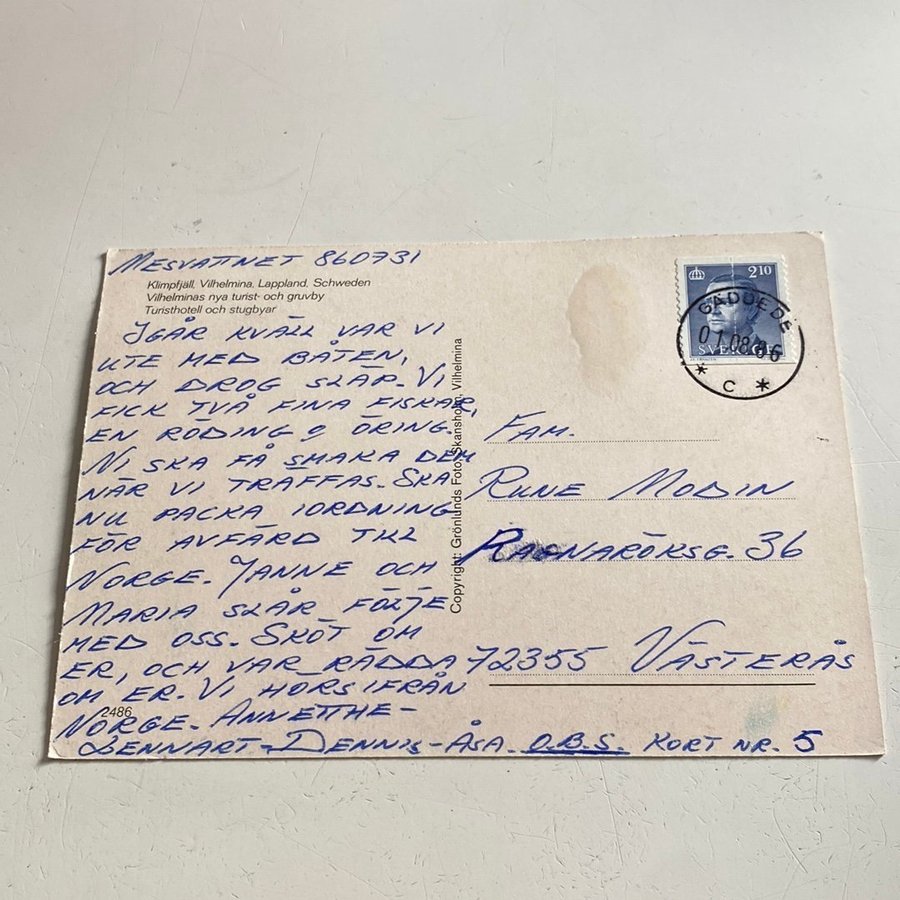 MESVATTNET 860731
Klimpfjäll, Vilhelmina, Lappland, Schweden
Vilhelminas nya turist- och gruvby
Turisthotell och stugbyar
IGÅR KVÄLL VAR VI
UTE MED BÅTEN,
OCH DROG SLÄP. VI
FICK TVÅ FINA FISKAR,
EN RÖDING O ÖRING.
NI SKA FÅ SMAKA DEM
NÄR VI TRÄFFAS. SKA
NU PACKA IORDNING
FÖR AVFÄRD TILL
NORGE. JANNE OCH
MARIA SLÅR FÖLJE
MED OSS. SKÖT OM
ER, OCH VAR RÄDDA
OM ER. VI HÖRS IFRÅN
NORGE. ANNETTHE-
LENNART-DENNIS-ÅSA. O.B.S. KORT NR. 5
2486
Copyright: Grönlunds Foto, Skansholm, Vilhelmina
2.10
SVERIGE
GÄDDEDE
01.08.86
* C *
FAM.
RUNE MODIN
RAGNARÖKSG. 36
72355 VÄSTERÅS